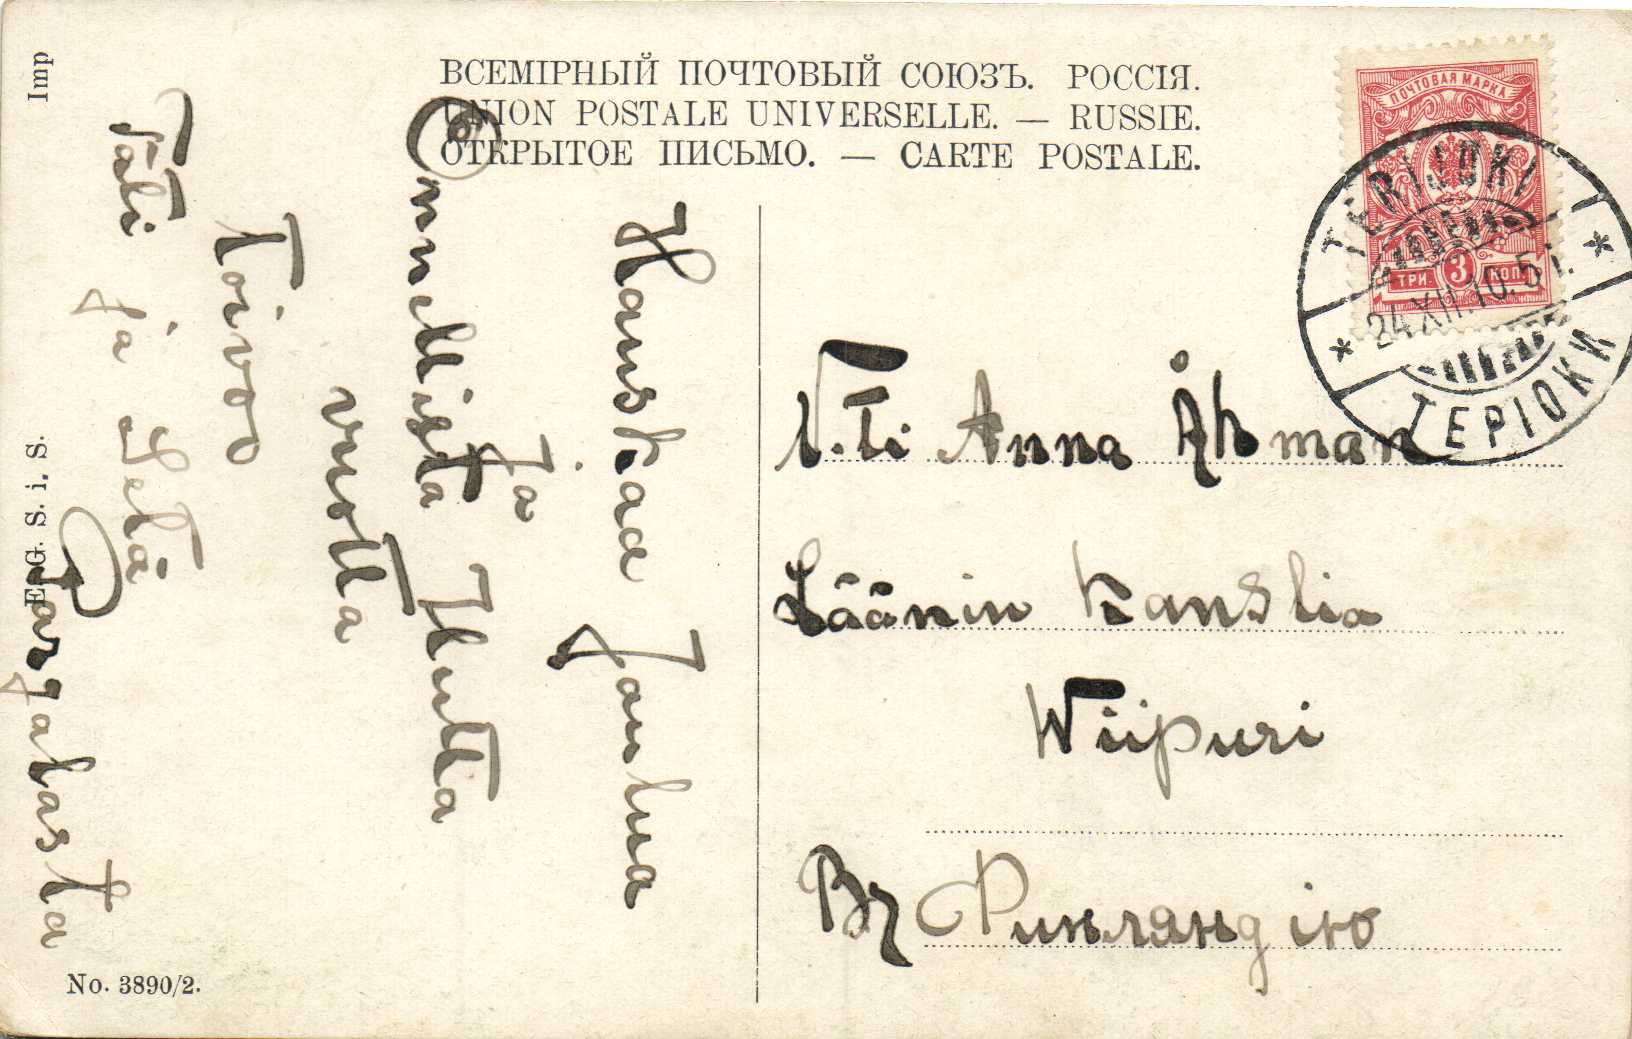 ВСЕМІРНЫЙ ПОЧТОВЫЙ СОЮЗЪ. РОССІЯ.
UNION POSTALE UNIVERSELLE. — RUSSIE.
ОТКРЫТОЕ ПИСЬМО. — CARTE POSTALE.
ПОЧТОВАЯ МАРКА
ТРИ 3 КОП.
TERIJOKI
24.XII.10. 5 i.
ТЕРІОКИ
N:ti Anna Åhman
Läänin Kanslia
Wiipuri
Въ Финляндію
Hauskaa Joulua
ja
Onnellista Uutta
vuotta
Toivoo
Täti ja Setä
Pargalasta
Imp
E. G. S. i. S.
No. 3890/2.